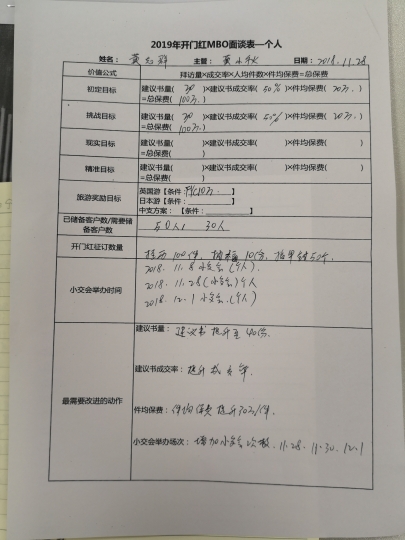 2019年开门红MBO面谈表—个人
姓名： 黄 主管： 黄小秋 日期： 2018.11.28
价值公式 拜访量×成交率×人均件数×件均保费=总保费
初定目标 建议书量( 20 )×建议书成交率( 50% )×件均保费( 20万 )
=总保费( 100万 )
挑战目标 建议书量( 20 )×建议书成交率( 50% )×件均保费( 20万 )
=总保费( 100万 )
现实目标 建议书量( )×建议书成交率( )×件均保费( )
=总保费( )
精准目标 建议书量( )×建议书成交率( )×件均保费( )
=总保费( )
旅游奖励目标 英国游【条件： 】
日本游【条件： 】
中支方案： 【条件： 】
已储备客户数/需要储备客户数 50人/ 30人
开门红征订数量 100件, 10份,
小交会举办时间 2018. 11.8 小交会.(个人)
2018. 11.28(小交会)个人
2018. 12.1 小交会.(个人)
最需要改进的动作
建议书量： 建议书提升至40份.
建议书成交率： 提升成交率.
件均保费： 件均保费提升 /件.
小交会举办场次： 增加小交会次数. 11.28. 11.30. 12.1